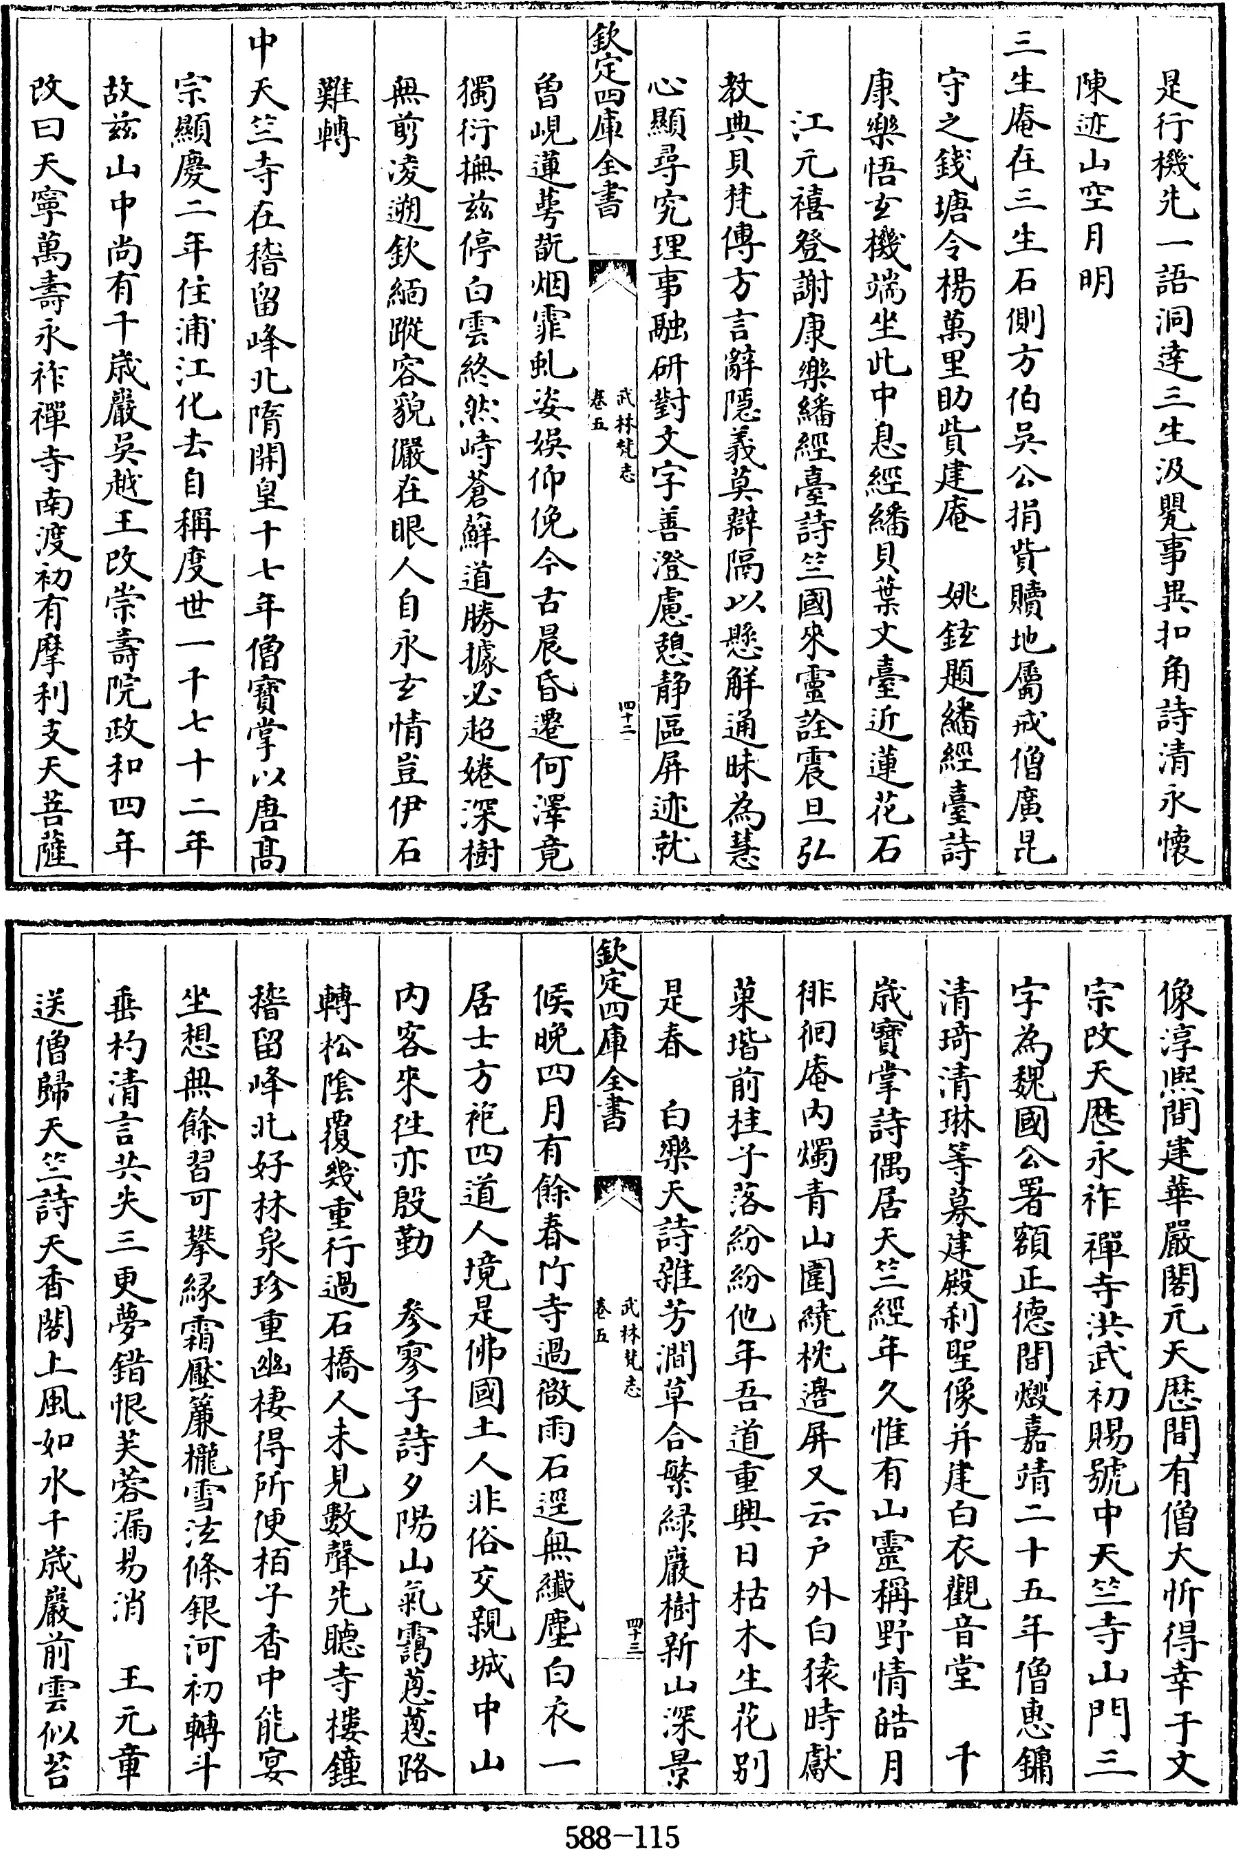 是行機先一語洞達三生汲甖事異扣角詩清永懷
陳迹山空月明
三生庵在三生石側方伯吳公捐貲贖地屬戒僧廣昆
守之錢塘令楊萬里助貲建庵　姚鉉題繙經臺詩
康樂悟玄機端坐此中息經繙貝葉文臺近蓮花石
江元禧登謝康樂繙經臺詩竺國來靈詮震旦弘
教典貝梵傳方言辭隱義莫辯隔以懸解通昧為慧
心顯尋究理事融研對文字善澄慮憩静區屏迹就
欽定四庫全書
武林梵志
卷五
四十二
曾峴蓮萼翫烟霏虬姿娱仰俛今古晨昏遷何澤竟
獨衍撫兹停白雲終然峙蒼蘚道勝據必超婘深樹
無剪凌遡欽緬蹤容貌儼在眼人自永玄情豈伊石
難轉
中天竺寺在稽留峰北隋開皇十七年僧寶掌以唐髙
宗顯慶二年住浦江化去自稱度世一千七十二年
故兹山中尚有千歲巖吳越王改崇壽院政和四年
改曰天寧萬壽永祚禪寺南渡初有摩利支天菩薩
像淳熙間建華嚴閣元天厯間有僧大忻得幸于文
宗改天厯永祚禪寺洪武初賜號中天竺寺山門三
字為魏國公署額正德間燬嘉靖二十五年僧惠鏞
清琦清琳等募建殿利聖像并建白衣觀音堂　千
歲寶掌詩偶居天竺經年久惟有山靈稱野情皓月
徘徊庵内燭青山圍繞枕邉屏又云户外白猿時獻
菓堦前桂子落紛紛他年吾道重興日枯木生花别
是春　白樂天詩雜芳澗草合繁緑巖樹新山深景
欽定四庫全書
武林梵志
卷五
四十三
候晩四月有餘春竹寺過微雨石逕無纖塵白衣一
居士方袍四道人境是佛國土人非俗交親城中山
内客來徃亦殷勤　參寥子詩夕陽山氣靄葱葱路
轉松陰覆幾重行過石橋人未見數聲先聽寺樓鐘
稽留峰北好林泉珍重幽棲得所便栢子香中能宴
坐想無餘習可攀縁霜壓簾櫳雪泫條銀河初轉斗
垂杓清言共失三更夢錯恨芙蓉漏易消　王元章
送僧歸天竺詩天香閣上風如水千歲巖前雲似苔
588-115